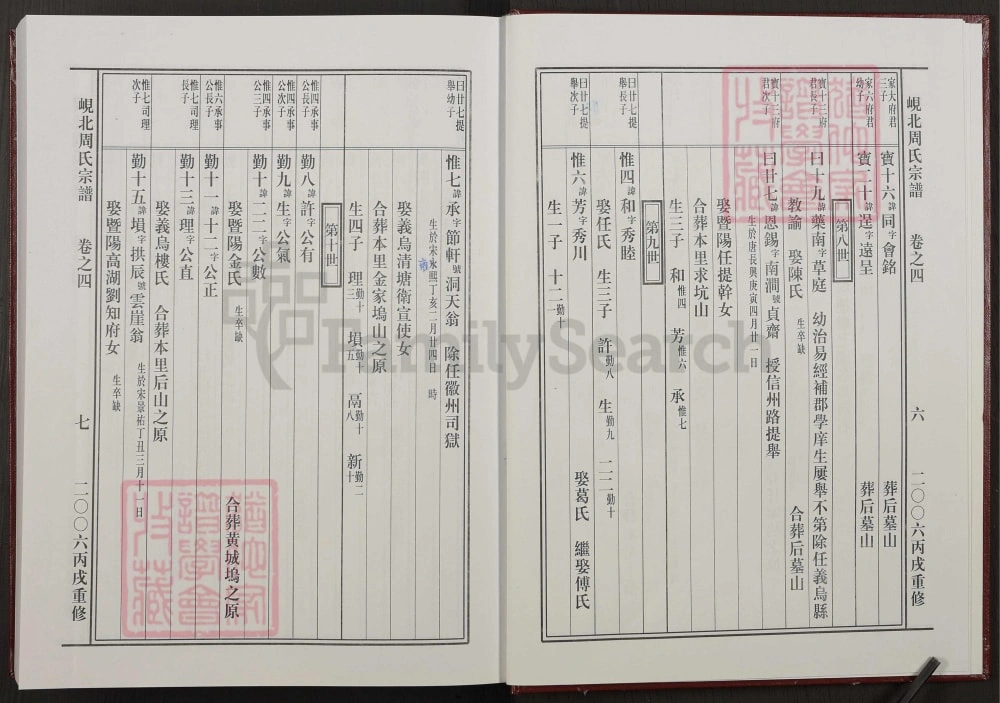 峴北周氏宗譜 卷之四 六 二〇〇六丙戌重修
家大府君三子 寶十六諱同字會銘 葬后墓山
家六府君幼子 寶二十諱逞字遠呈 葬后墓山
第八世
寶十三府君長子 曰十九諱藥南字草庭 幼治易經補郡學庠生屢舉不第除任義烏縣
教諭 娶陳氏 生卒缺 合葬后墓山
寶十三府君次子 曰廿七諱恩錫字南澗號貞齋 授信州路提舉
生於唐長興庚寅四月廿一日
娶暨陽任提幹女
合葬本里求坑山
生三子 和惟四 芳惟六 承惟七
第九世
曰廿七提舉長子 惟四諱和字秀睦
娶任氏 生三子 許勤八 生勤九 二二二勤十
曰廿七提舉次子 惟六諱芳字秀川 娶葛氏 繼娶傅氏
生一子 十二勤十一
曰廿七提舉幼子 惟七諱承字節軒號洞天翁 除任徽州司獄
生於宋永熙丁亥二月廿四日 時
娶義烏清塘衛宣使女
合葬本里金家塢山之原
生四子 理勤十三 塤勤十五 鬲勤十八 新勤二十
第十世
惟四承事公長子 勤八諱許字公有
惟四承事公次子 勤九諱生字公氣
惟四承事公三子 勤十諱二二二字公數
娶暨陽金氏 生卒缺 合葬黃城塢之原
惟六承事公長子 勤十一諱十二字公正
惟七司理長子 勤十三諱理字公直
娶義烏樓氏 合葬本里后山之原
惟七司理次子 勤十五諱塤字拱辰號雲崖翁 生於宋景祐丁丑三月十一日
娶暨陽高湖劉知府女 生卒缺
峴北周氏宗譜 卷之四 七 二〇〇六丙戌重修
FamilySearch